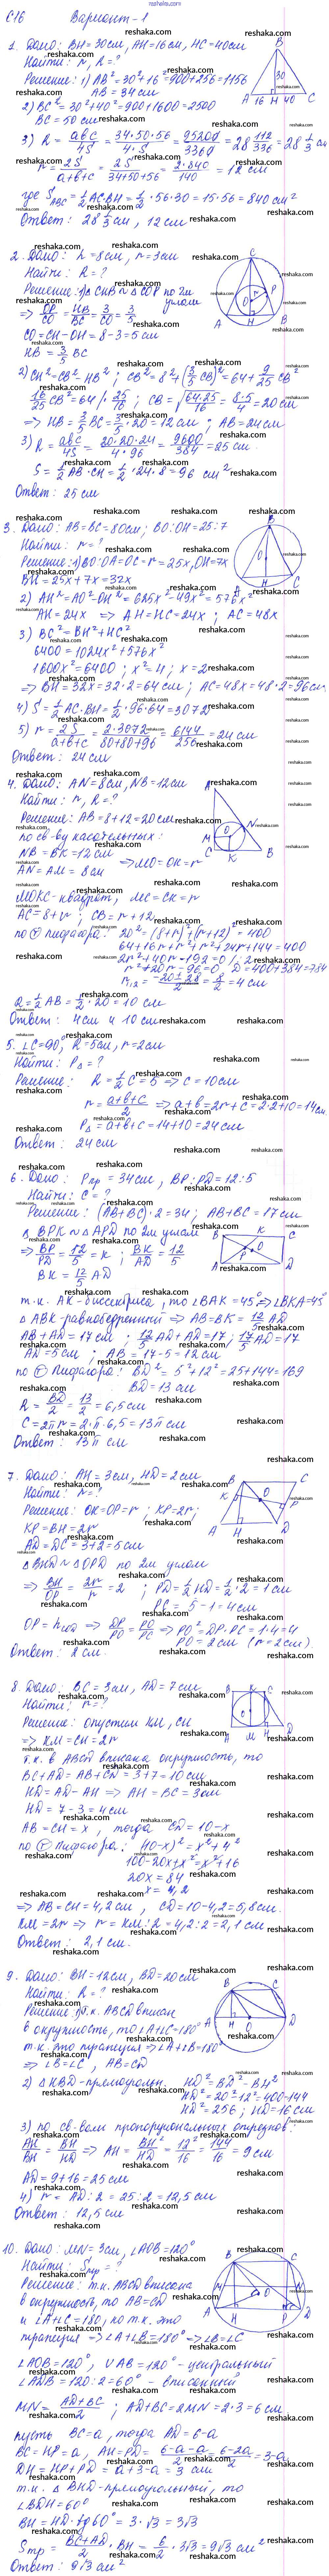 reshak.com
С16 Вариант - 1
1. Дано: BH=30см, AH=16см, HC=40см
Найти: r, R = ?
Решение: 1) AB²=30²+16²=900+256=1156
AB = 34см
2) BC²=30²+40²=900+1600=2500
BC = 50 см
3) R = abc/4S = 34·50·56/4·S = 95200/3360 = 28 112/336 = 28 1/3 см
r = 2S/a+b+c = 2S/34+50+56 = 2·840/140 = 12 см
где S ABC = 1/2 AC·BH = 1/2 · 56·30 = 15·56 = 840 см²
Ответ: 28 1/3 см, 12 см
2. Дано: h=8см, r=3см
Найти: R = ?
Решение: 1) △CHB ∾ △COP по 2м углам
=> OP/CO = HB/BC = 3/CO = 3/5
CO = CH - OH = 8-3 = 5 см
HB = 3/5 BC
2) CH² = CB² - HB²; CB² = 8² + (3/5 CB)² = 64 + 9/25 CB²
16/25 CB² = 64 | · 25/16; CB = √64·25/16 = 8·5/4 = 20 см
=> HB = 3/5 BC = 3/5 · 20 = 12 см; AB = 24 см
3) R = abc/4S = 20·20·24/4·96 = 9600/384 = 25 см
S = 1/2 AB·CH = 1/2 · 24·8 = 96 см²
Ответ: 25 см
3. Дано: AB=BC=80см; BO:OH=25:7
Найти: r = ?
Решение: 1) BO=OA=OC=r=25x, OH=7x
BH = 25x+7x = 32x
2) AH² = AO² - OH² = 625x² - 49x² = 576x²
AH = 24x => AH=HC=24x; AC=48x
3) BC² = BH² + HC²
6400 = 1024x² + 576x²
1600x² = 6400; x² = 4; x = 2
=> BH = 32x = 32·2 = 64 см; AC = 48x = 48·2 = 96 см
4) S = 1/2 AC·BH = 1/2 · 96·64 = 3072
5) r = 2S/a+b+c = 2·3072/80+80+96 = 6144/256 = 24 см
Ответ: 24 см
4. Дано: AN=8см, NB=12см
Найти: r, R = ?
Решение: AB = 8+12 = 20см
по св-ву касательных:
NB = BK = 12 см
AN = AM = 8см
=> MO = OK = r
MOKC - квадрат, MC = CK = r
AC = 8+r; CB = r+12
по т Пифагора: 20² = (8+r)² + (r+12)² = 400
64+16r+r²+r²+24r+144 = 400
2r²+40r-192 = 0 | :2
r²+20r-96=0; D = 400+384 = 784
r₁,₂ = -20±28/2 = 8/2 = 4 см
R = 1/2 AB = 1/2 · 20 = 10 см
Ответ: 4см и 10 см
5. ∠C = 90°, R = 5см, r = 2см
Найти: P△ = ?
Решение: R = 1/2 C = 5 => c = 10см
r = a+b+c/2 => a+b = 2r+c = 2·2+10 = 14см
P△ = a+b+c = 14+10 = 24см
Ответ: 24см
6. Дано: Pпр = 34см, BP:PD = 12:5
Найти: C = ?
Решение: (AB+BC)·2 = 34; AB+BC = 17см
△BPK ∾ △APD по 2м углам
=> BP/PD = 12/5 = k; BK/AD = 12/5
BK = 12/5 AD
т.к. AK-биссектриса, то ∠BAK = 45° => ∠BKA = 45°
△ABK-равнобедренный => AB = BK = 12/5 AD
AB+AD = 17см; 12/5 AD + AD = 17; 17/5 AD = 17
AD = 5см; AB = 17-5 = 12см
по т Пифагора: BD² = 5²+12² = 25+144 = 169
BD = 13 см
R = BD/2 = 13/2 = 6,5 см
C = 2πr = 2·π·6,5 = 13π см
Ответ: 13π см
7. Дано: AH=3см, HD=2см
Найти: r = ?
Решение: OK=OP=r; KP=2r;
KP = BH = 2r
AD = DC = 3+2 = 5см
△BHD ∾ △OPD по 2м углам
=> BH/OP = 2r/r = 2; PD = 1/2 HD = 1/2 · 2 = 1 см
PC = 5-1 = 4см
OP = h COD => DP/PO = PO/PC => PO² = DP·PC = 1·4 = 4
PO = 2см (r = 2см).
Ответ: 2см.
8. Дано: BC=3см, AD=7см
Найти: r = ?
Решение: опустим KM, CH
=> KM = CH = 2r
т.к. в ABCD вписана окружность, то
BC+AD = AB+CD = 3+7 = 10 см
HD = AD-AH => AH = BC = 3см
HD = 7-3 = 4см
AB = CH = x, тогда CD = 10-x
по т Пифагора: (10-x)² = x²+4²
100-20x+x² = x²+16
20x = 84
x = 4,2
=> AB = CH = 4,2см, CD = 10-4,2 = 5,8см.
KM = 2r => r = KM:2 = 4,2:2 = 2,1 см
Ответ: 2,1 см.
9. Дано: BH=12см, BD=20см
Найти: R = ?
Решение: 1) т.к. ABCD вписан
в окружность, то ∠A+∠C=180°
т.к. это трапеция => ∠A+∠B=180°
=> ∠B=∠C, AB=CD
2) △HBD-прямоугольн. HD² = BD² - BH²
HD² = 20²-12² = 400-144
HD² = 256; HD = 16см
3) по св-вам пропорциональных отрезков:
AH/BH = BH/HD => AH = BH²/HD = 12²/16 = 144/16 = 9 см
AD = 9+16 = 25 см
4) r = AD:2 = 25:2 = 12,5 см
Ответ: 12,5 см
10. Дано: MN=3см, ∠AOB=120°
Найти: Sтр = ?
Решение: т.к. ABCD вписана
в окружность, то AB=CD
и ∠A+∠C=180, но т.к. это
трапеция => ∠A+∠B=180° => ∠B=∠C
∠AOB=120°, ∪AB=120° - центральный
∠ADB = 120:2 = 60° - вписанный
MN = AD+BC/2; AD+BC = 2MN = 2·3 = 6 см
пусть BC=a, тогда AD = 6-a
BC = HP = a, AH=PD = 6-a-a/2 = 6-2a/2 = 3-a
DH = HP+PD = a+3-a = 3 см
т.к. △BHD-прямоугольный, то
∠BDH = 60°
BH = HD·tg60° = 3·√3 = 3√3
Sтр = BC+AD/2 · BH = 6/2 · 3√3 = 9√3 см²
Ответ: 9√3 см²